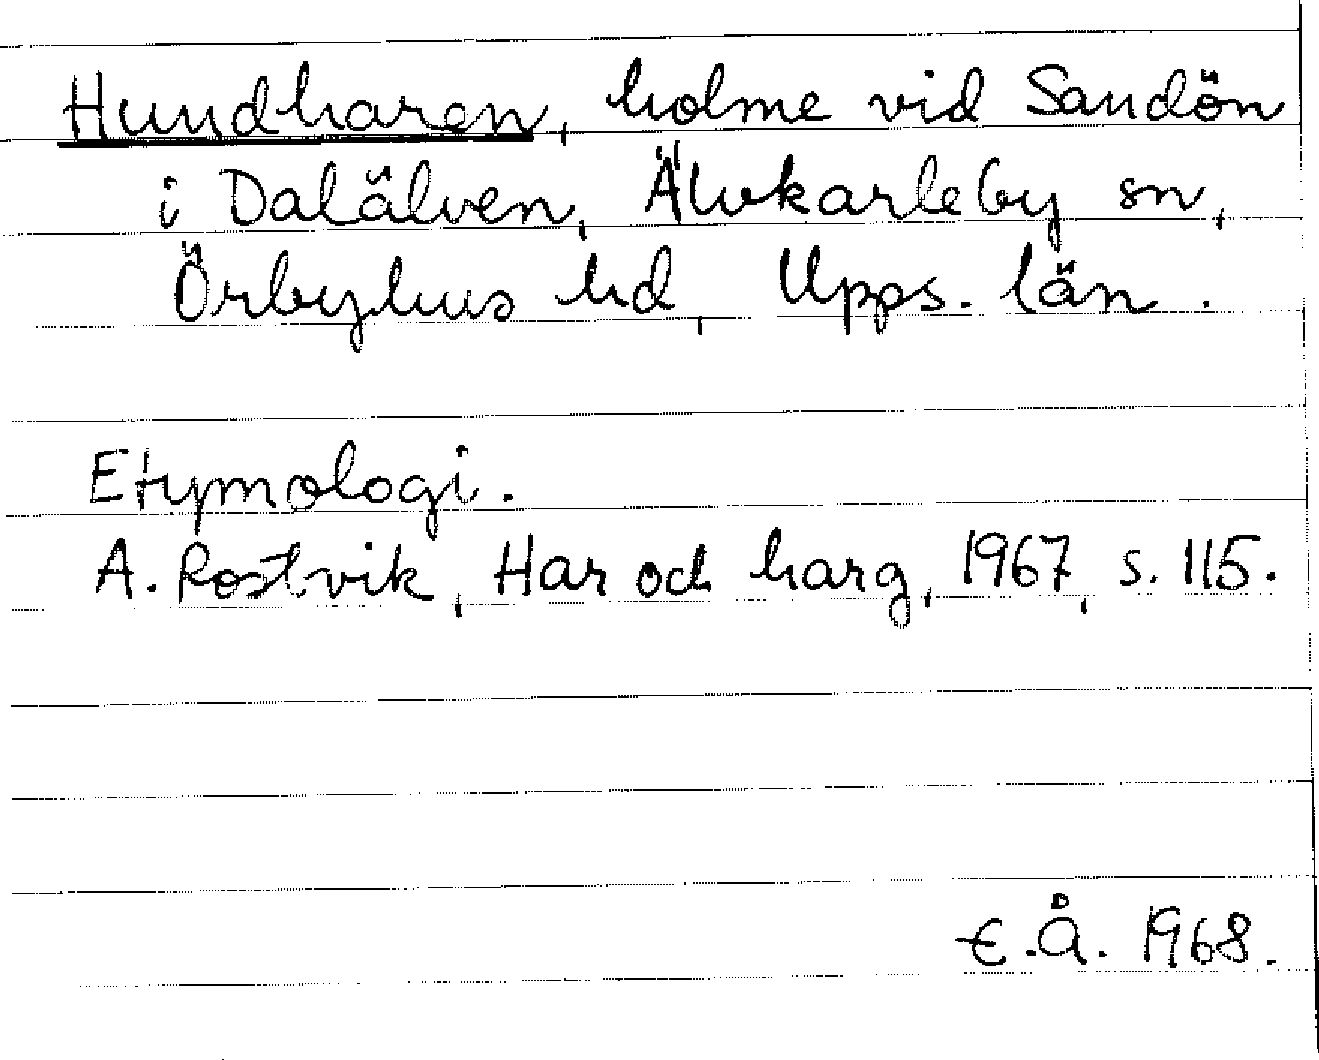 Hundharen, holme vid Sandön
i Dalälven, Älvkarleby sn,
Örbyhus hd, Upps. län.
Etymologi.
A. Rostvik, Har och harg, 1967, s. 115.
E.Å. 1968.